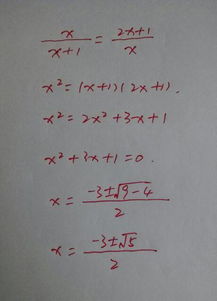 x/(x+1) = (2x+1)/x
x² = (x+1)(2x+1).
x² = 2x² + 3x + 1
x² + 3x + 1 = 0.
x = (-3±√(9-4))/2
x = (-3±√5)/2